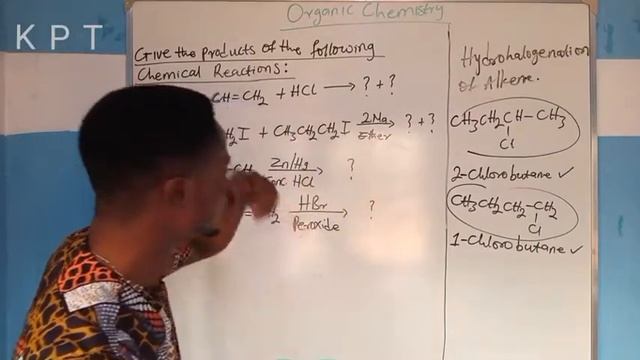 KPT
Organic Chemistry
Give the products of the following
Chemical Reactions:
CH=CH₂ + HCl ⟶ ? + ?
H₂I + CH₃CH₂CH₂I 2Na Ether ⟶ ? + ?
Zn/Hg HCl ⟶ ?
HBr Peroxide ⟶ ?
Hydrohalogenation
of Alkene.
CH₃CH₂CH-CH₃
Cl
2-Chlorobutane ✓
CH₃CH₂CH₂-CH₂
Cl
1-Chlorobutane ✓